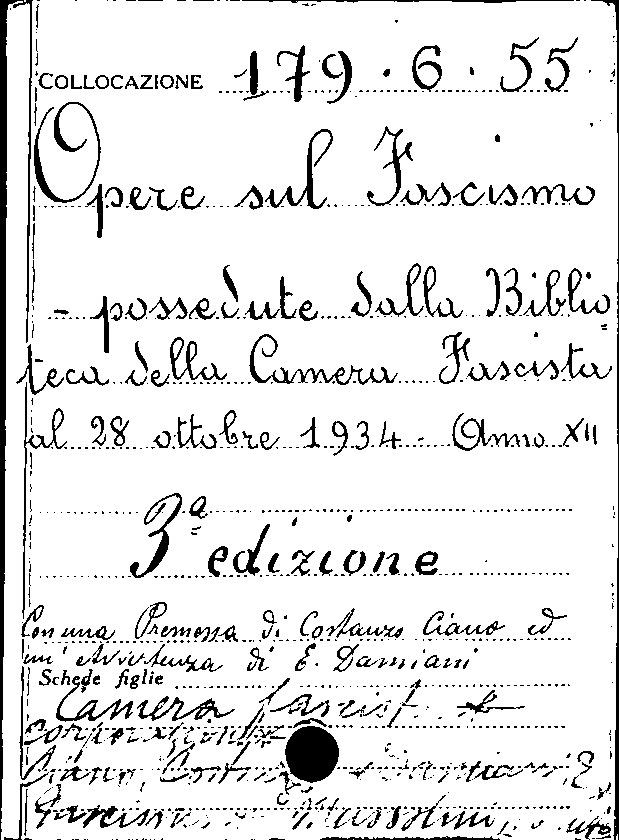 COLLOCAZIONE 179.6.55
Opere sul Fascismo
- possedute dalla Biblio
teca della Camera Fascista
al 28 ottobre 1934 - Anno XII
3ª edizione
Con una Premessa di Costanzo Ciano ed
un' Avvertenza di E. Damiani
Schede figlie
Camera fascist.
corporazioni
Ciano, Damiani E.
Fascismo Mussolini